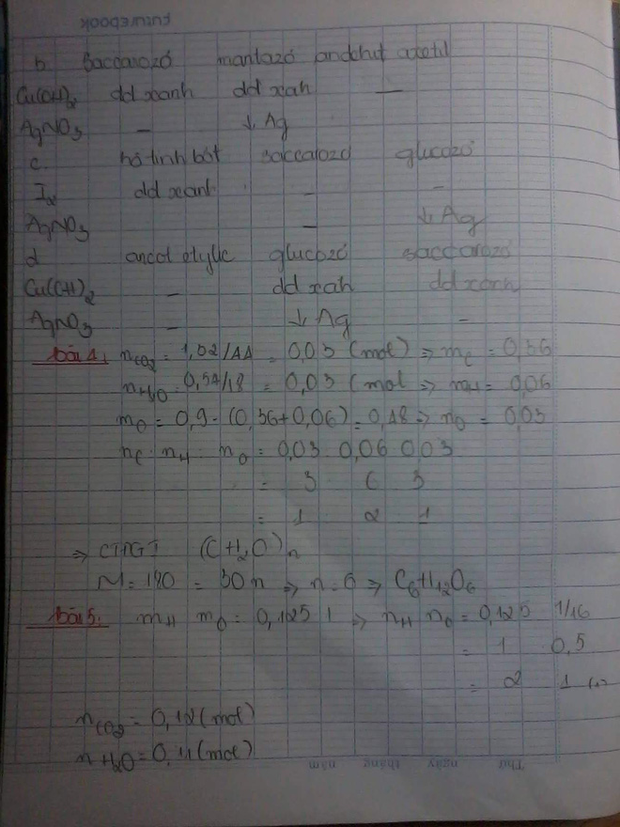 FUTUREBOOK
b. Saccarozơ mantozơ anđehit axetil
Cu(OH)2 dd xanh dd xah —
AgNO3 – ↓ Ag
c. hồ tinh bột saccarozơ glucozơ
I2 dd xanh – –
AgNO3 – ↓ Ag
d ancol etylic glucozơ saccarozơ
Cu(OH)2 – dd xah dd xanh
AgNO3 – ↓ Ag –
Bài 4: nCO2 = 1,32/44 = 0,03 (mol) ⇒ mC = 0,36
nH2O = 0,54/18 = 0,03 (mol ⇒ mH = 0,06
mO = 0,9 - (0,36+0,06) = 0,48 ⇒ nO = 0,03
nC : nH : nO = 0,03 0,06 0,03
= 3 6 3
= 1 2 1
⇒ CTĐGT (CH2O)n
M = 180 = 30n ⇒ n = 6 ⇒ C6H12O6
Bài 5: mH mO = 0,125 1 ⇒ nH nO = 0,125 1/16
= 1 0,5
= 2 1
nCO2 = 0,12 (mol)
nH2O = 0,11 (mol)
Thứ ngày tháng năm